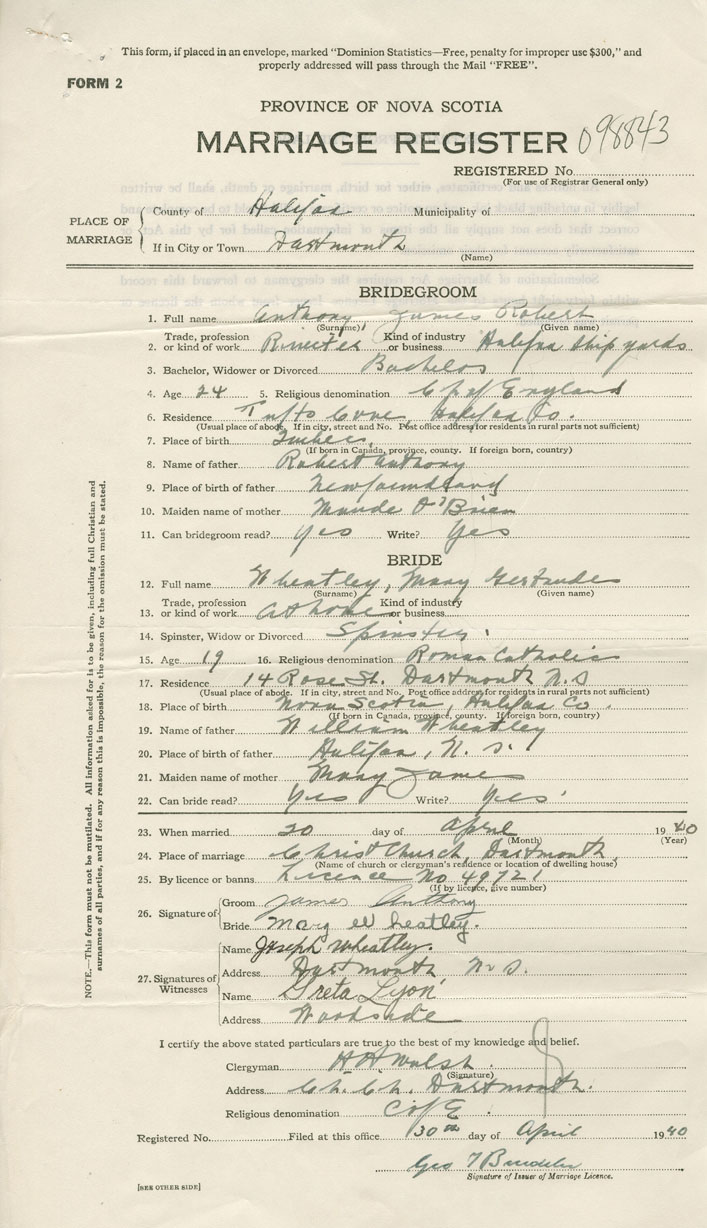 This form, if placed in an envelope, marked "Dominion Statistics—Free, penalty for improper use $300," and
properly addressed will pass through the Mail "FREE".
FORM 2
PROVINCE OF NOVA SCOTIA
MARRIAGE REGISTER 098843
REGISTERED No.
(For use of Registrar General only)
PLACE OF MARRIAGE
County of Halifax Municipality of
If in City or Town Dartmouth
(Name)
BRIDEGROOM
1. Full name Anthony James Robert
(Surname) (Given name)
2. Trade, profession or kind of work Riveter Kind of industry or business Halifax Ship yards
3. Bachelor, Widower or Divorced Bachelor
4. Age 24 5. Religious denomination Ch of England
6. Residence Tufts Cove, Halifax Co.
(Usual place of abode. If in city, street and No. Post office address for residents in rural parts not sufficient)
7. Place of birth
(If born in Canada, province, county. If foreign born, country)
8. Name of father Robert Anthony
9. Place of birth of father Newfoundland
10. Maiden name of mother Maude O'Brien
11. Can bridegroom read? Yes Write? Yes
BRIDE
12. Full name Wheatley, Mary Gertrude
(Surname) (Given name)
13. Trade, profession or kind of work At home Kind of industry or business
14. Spinster, Widow or Divorced Spinster
15. Age 19 16. Religious denomination Roman Catholic
17. Residence 14 Rose St. Dartmouth N.S
(Usual place of abode. If in city, street and No. Post office address for residents in rural parts not sufficient)
18. Place of birth Nova Scotia, Halifax Co.
(If born in Canada, province, county. If foreign born, country)
19. Name of father William Wheatley
20. Place of birth of father Halifax, N. S.
21. Maiden name of mother Mary James
22. Can bride read? Yes Write? Yes
23. When married 20 day of April 1940
(Month) (Year)
24. Place of marriage Christ Church, Dartmouth,
(Name of church or clergyman's residence or location of dwelling house)
25. By licence or banns Licence No 49721
(If by licence, give number)
26. Signature of
Groom James Anthony
Bride Mary Wheatley.
27. Signatures of Witnesses
Name Joseph Wheatley.
Address Dartmouth N. S.
Name Greta Lyon
Address Woodside
I certify the above stated particulars are true to the best of my knowledge and belief.
Clergyman H A Walsh
(Signature)
Address Ch. Ch. Dartmouth.
Religious denomination C of E.
Registered No. Filed at this office 30th day of April 1940
Geo
Signature of Issuer of Marriage Licence.
[SEE OTHER SIDE]
NOTE.—This form must not be mutilated. All information asked for is to be given, including full Christian and
surnames of all parties, and if for any reason this is impossible, the reason for the omission must be stated.